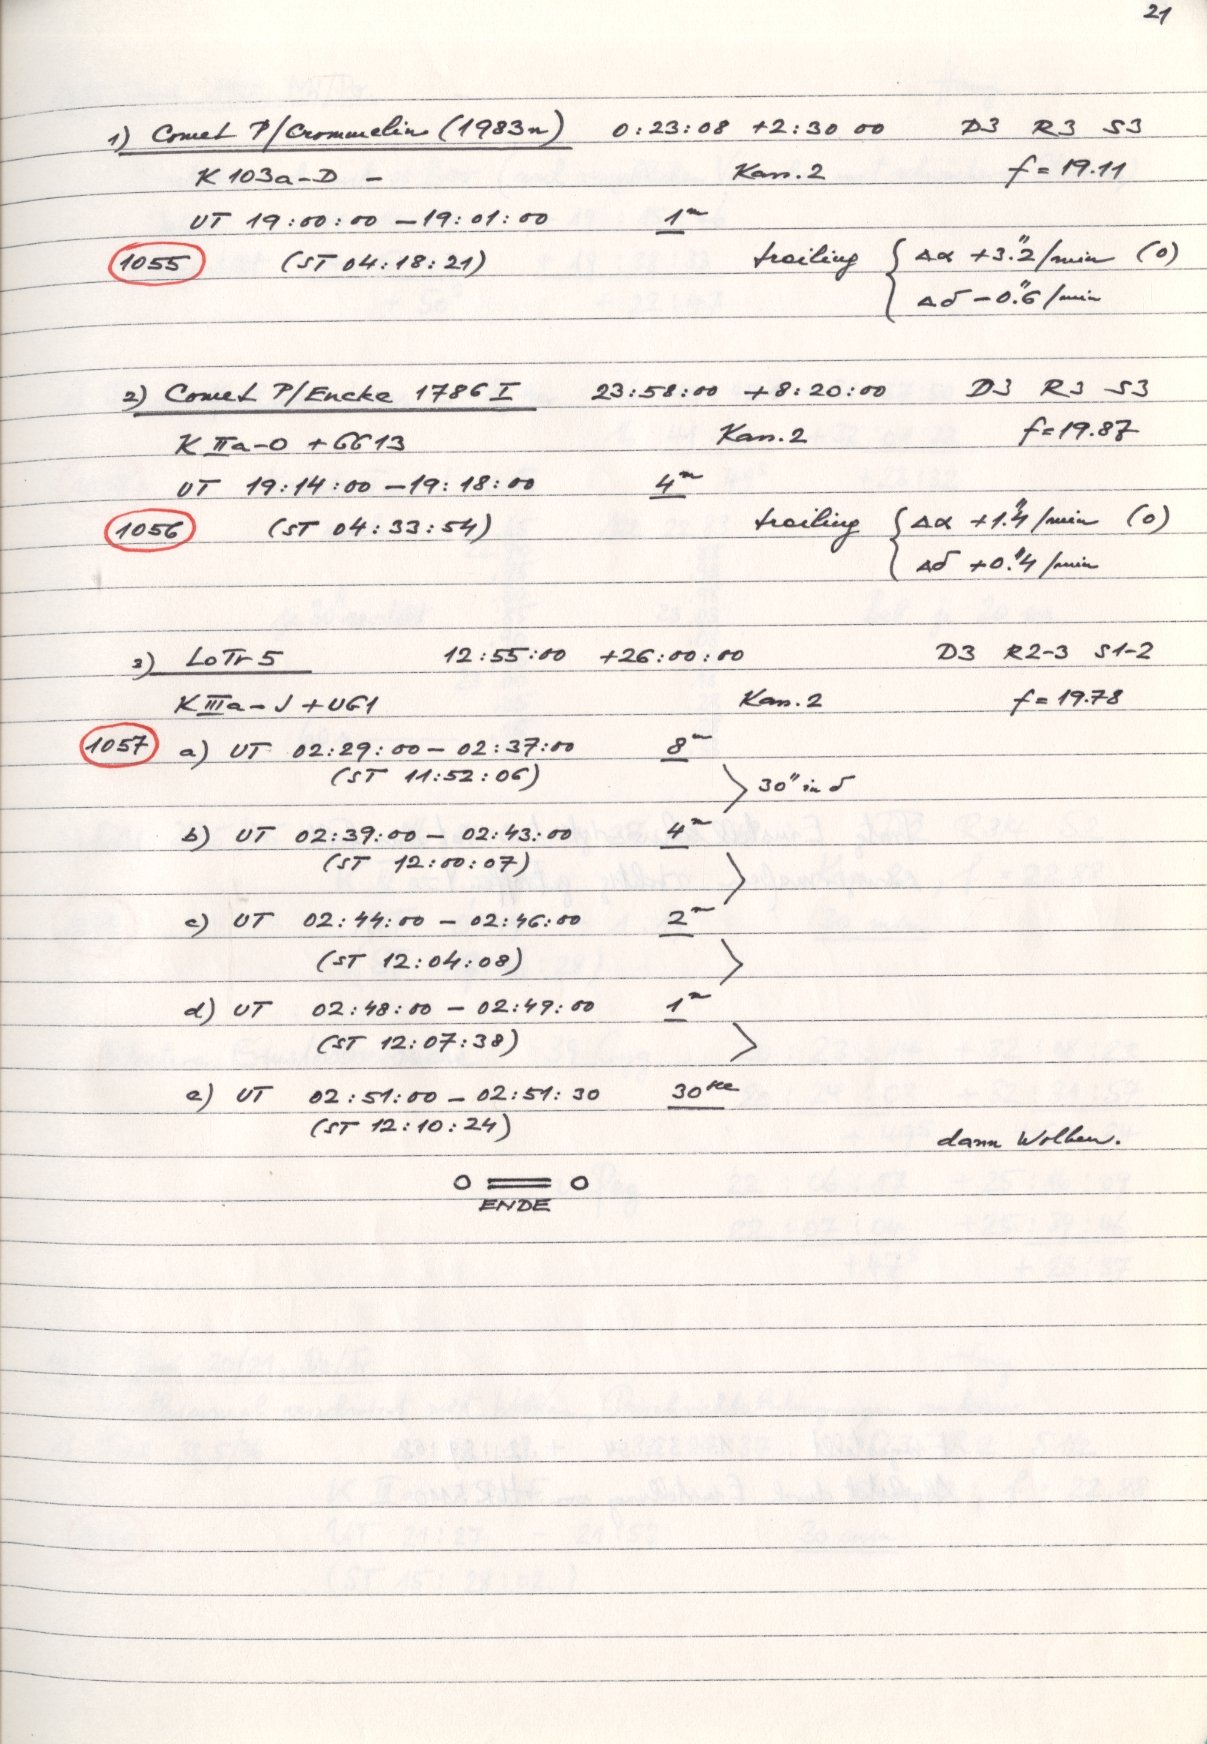 21
1) Comet P/Crommelin (1983n) 0:23:08 +2:30 00 D3 R3 S3
K 103a-D - Kan. 2 f = 19.11
UT 19:00:00 - 19:01:00 1m
1055 (ST 04:18:21) trailing { Δα +3."2/min (0)
Δδ -0."6/min
2) Comet P/Encke 1786 I 23:58:00 +8:20:00 D3 R3 S3
K IIa-O + GG13 Kan. 2 f = 19.87
UT 19:14:00 - 19:18:00 4m
1056 (ST 04:33:54) trailing { Δα +1."4/min (0)
Δδ +0."4/min
3) LoTr 5 12:55:00 +26:00:00 D3 R2-3 S1-2
K IIIa-J + UG1 Kan. 2 f = 19.78
1057 a) UT 02:29:00 - 02:37:00 8m
(ST 11:52:06) > 30" in δ
b) UT 02:39:00 - 02:43:00 4m
(ST 12:00:07) >
c) UT 02:44:00 - 02:46:00 2m
(ST 12:04:08) >
d) UT 02:48:00 - 02:49:00 1m
(ST 12:07:38) >
e) UT 02:51:00 - 02:51:30 30sec
(ST 12:10:24)
dann Wolken.
ENDE